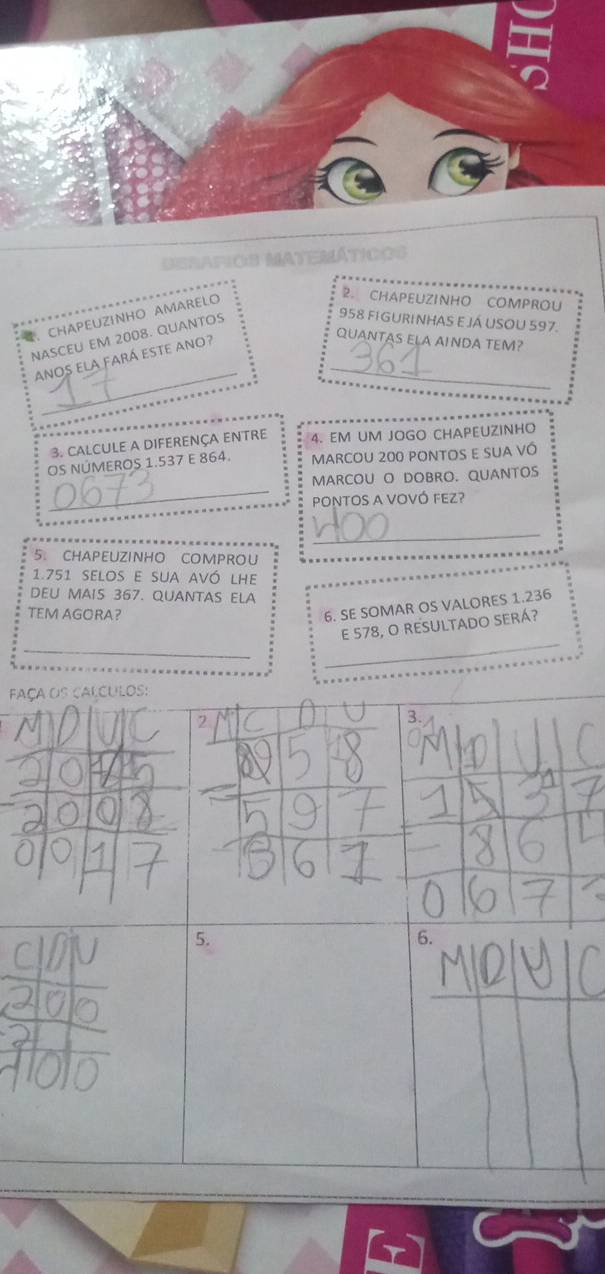 SHO
DESAFIOS MATEMÁTICOS
CHAPEUZINHO AMARELO
NASCEU EM 2008. QUANTOS
ANOS ELA FARÁ ESTE ANO?
17
2. CHAPEUZINHO COMPROU
958 FIGURINHAS E JÁ USOU 597.
QUANTAS ELA AINDA TEM?
361
3. CALCULE A DIFERENÇA ENTRE
OS NÚMEROS 1.537 E 864.
0673
4. EM UM JOGO CHAPEUZINHO
MARCOU 200 PONTOS E SUA VÓ
MARCOU O DOBRO. QUANTOS
PONTOS A VOVÓ FEZ?
400
5. CHAPEUZINHO COMPROU
1.751 SELOS E SUA AVÓ LHE
DEU MAIS 367. QUANTAS ELA
TEM AGORA?
6. SE SOMAR OS VALORES 1.236
E 578, O RESULTADO SERÁ?
FAÇA OS CALCULOS:
M D U C
2 0 5
- 2 0 0 8
0 0 1 7
2. M C D U
9 5 8
- 5 9 7
3 6 1
3. M D U C
1 5 3 7
- 8 6 4
0 6 7 3
C D U
2 0 0
2
4 0 0
5.
6. M D U C
E